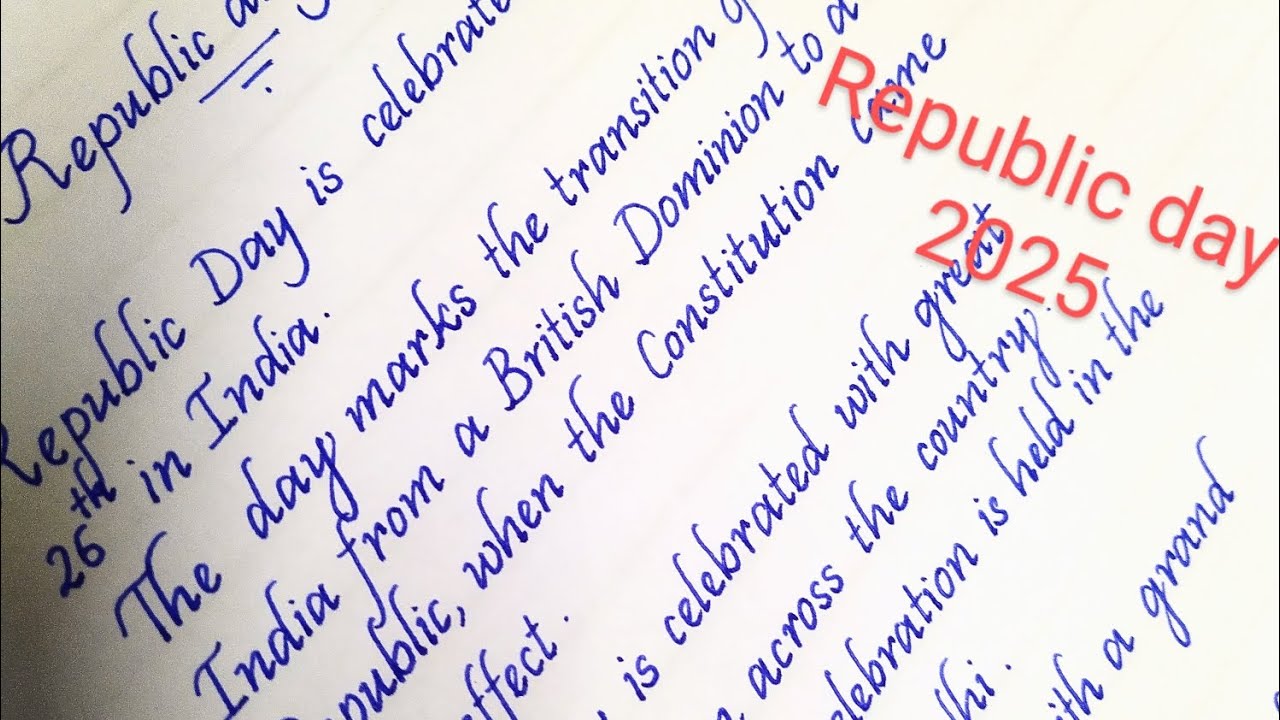 Republic
Republic Day is celebrate
26th in India.
The day marks the transition
India from a British Dominion to a
public, when the Constitution came
effect.
is celebrated with great
across the country.
elebration is held in the
hi.
th a grand
Republic day
2025